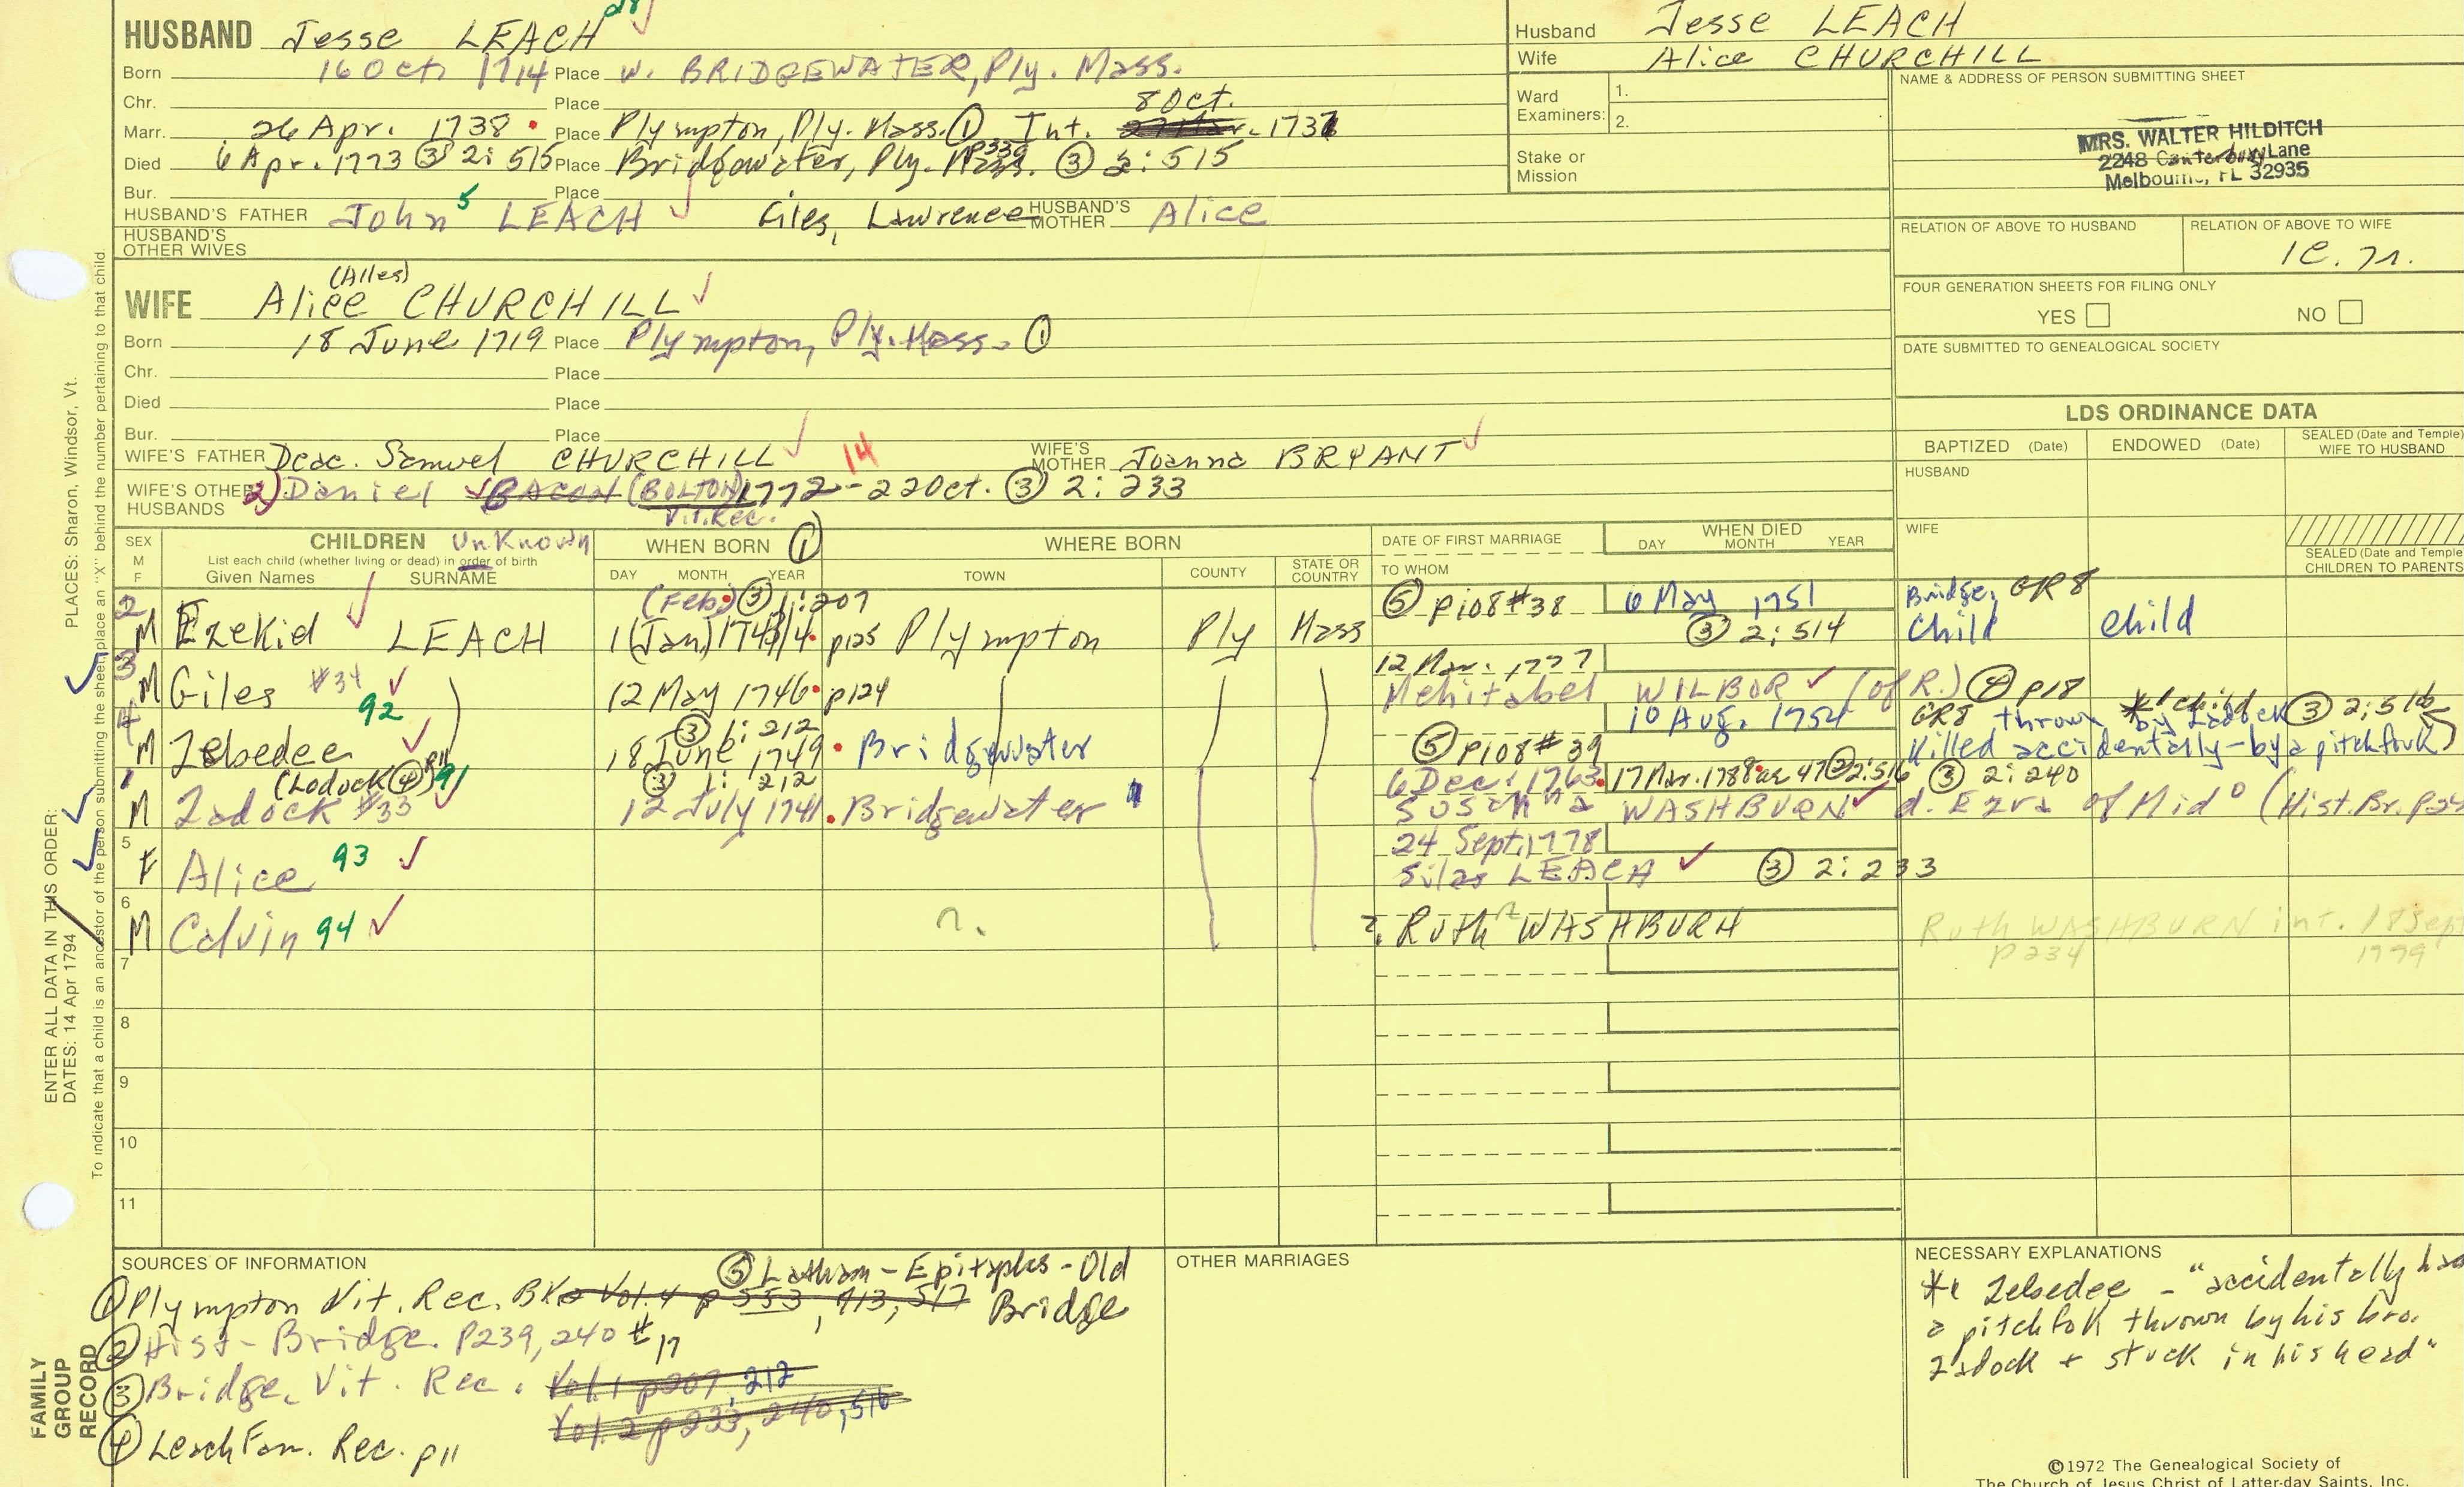 HUSBAND Jesse LEACH
Born 16 Oct 1714 Place W. BRIDGEWATER, Ply. Mass.
Chr. Place 8 Oct.
Marr. 26 Apr. 1738 Place Plympton, Ply. Mass. ① Int. 1737
Died 6 Apr. 1773 ③ 2:515 Place Bridgewater, Ply. Mass. ③ 2:515
p339
Bur. Place
HUSBAND'S FATHER John 5 LEACH Giles, Lawrence HUSBAND'S MOTHER Alice
HUSBAND'S OTHER WIVES
(Alles)
WIFE Alice CHURCHILL
Born 18 June 1719 Place Plympton, Ply. Mass. ①
Chr. Place
Died Place
Bur. Place
WIFE'S FATHER Deac. Samuel CHURCHILL 14 WIFE'S MOTHER Joanna BRYANT
WIFE'S OTHER HUSBANDS 2) Daniel BACON (BOLTON) 1772 - 22 Oct. ③ 2:233
Vit. Rec.
Husband Jesse LEACH
Wife Alice CHURCHILL
Ward Examiners: 1.
2.
Stake or Mission
NAME & ADDRESS OF PERSON SUBMITTING SHEET
MRS. WALTER HILDITCH
2248 Canterbury Lane
Melbourne, FL 32935
RELATION OF ABOVE TO HUSBAND RELATION OF ABOVE TO WIFE
FOUR GENERATION SHEETS FOR FILING ONLY
YES NO
DATE SUBMITTED TO GENEALOGICAL SOCIETY
LDS ORDINANCE DATA
BAPTIZED (Date) ENDOWED (Date) SEALED (Date and Temple) WIFE TO HUSBAND
HUSBAND
WIFE
SEALED (Date and Temple) CHILDREN TO PARENTS
SEX M F
CHILDREN Unknown
List each child (whether living or dead) in order of birth
Given Names SURNAME
WHEN BORN ①
DAY MONTH YEAR
WHERE BORN
TOWN COUNTY STATE OR COUNTRY
DATE OF FIRST MARRIAGE
TO WHOM
WHEN DIED
DAY MONTH YEAR
2 (Feb.) ③ 1:207 ⑤ p108 #38 6 May 1751 Bridge. GR8
M Ezekiel LEACH 1 (Jan) 1743/4 p125 Plympton Ply Mass ③ 2:514 Child child
3 12 Mar. 1777
M Giles #34 92 12 May 1746 p124 Mehitabel WILBOR (of R.) ④ p18
4 ③ 1:212 10 Aug. 1754 GR8 thrown by Zadock ③ 2:516
M Zebedee 18 June 1749 Bridgewater ⑤ p108 #39 Killed accidentally - by a pitchfork
1 (Lodock ④ p11) 91 ③ 1:212 6 Dec. 1763 17 Mar. 1788 ae 47 2:516 ③ 2:240
M Zadock #33 12 July 1741 Bridgewater Susanna WASHBURN d. Ezra of Mid° (Hist. Br. p24
5 24 Sept. 1778
F Alice 93 Silas LEACH ③ 2:233
6
M Calvin 94 ?. Ruth WASHBURN Ruth WASHBURN int. 18 Sept
p234 1779
7
8
9
10
11
SOURCES OF INFORMATION
⑤ Latham - Epitaphs - Old Bridge
① Plympton Vit. Rec. BK2 Vol. 4 p 553, 413, 517
② Hist - Bridge. P239, 240 #17
③ Bridge. Vit. Rec. Vol. 1 p207, 212
Vol. 2 p233, 240, 516
④ Leach Fam. Rec. p11
OTHER MARRIAGES
NECESSARY EXPLANATIONS
*1 Zebedee - "accidentally had
a pitchfok thrown by his bro.
Zadock + stuck in his head"
©1972 The Genealogical Society of
The Church of Jesus Christ of Latter-day Saints, Inc.
ENTER ALL DATA IN THIS ORDER:
DATES: 14 Apr 1794 PLACES: Sharon, Windsor, Vt.
To indicate that a child is an ancestor of the person submitting the sheet, place an "X" behind the number pertaining to that child.
FAMILY
GROUP
RECORD